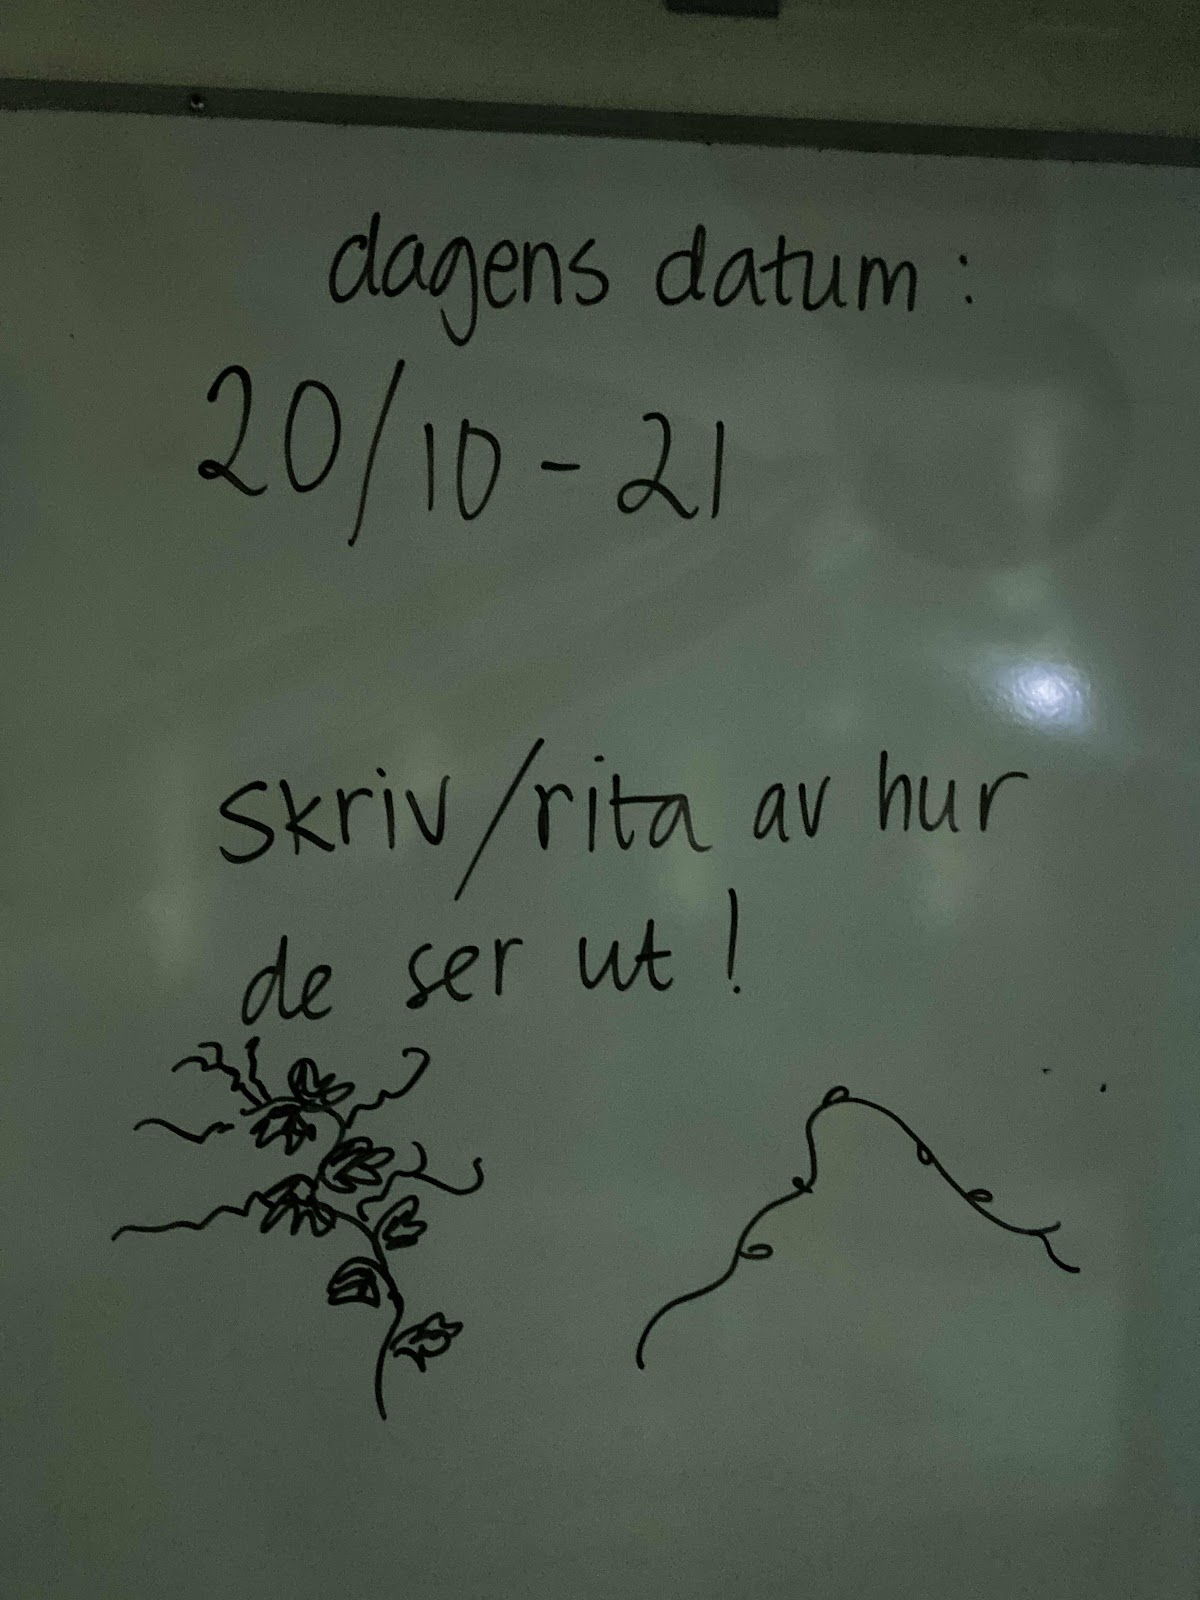 dagens datum:
20/10-21
skriv/rita av hur
de ser ut!